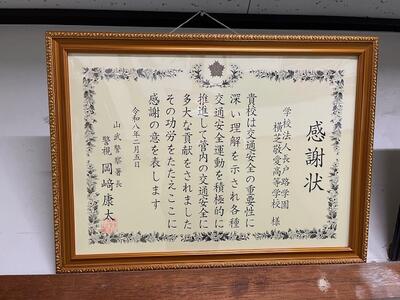 感謝状
学校法人長戸路学園
横芝敬愛高等学校 様
貴校は交通安全の重要性に
深い理解を示され各種
交通安全運動を積極的に
推進して管内の交通安全に
多大な貢献をされました
その功労をたたえここに
感謝の意を表します
令和八年二月五日
山武警察署長
警視 岡﨑康太